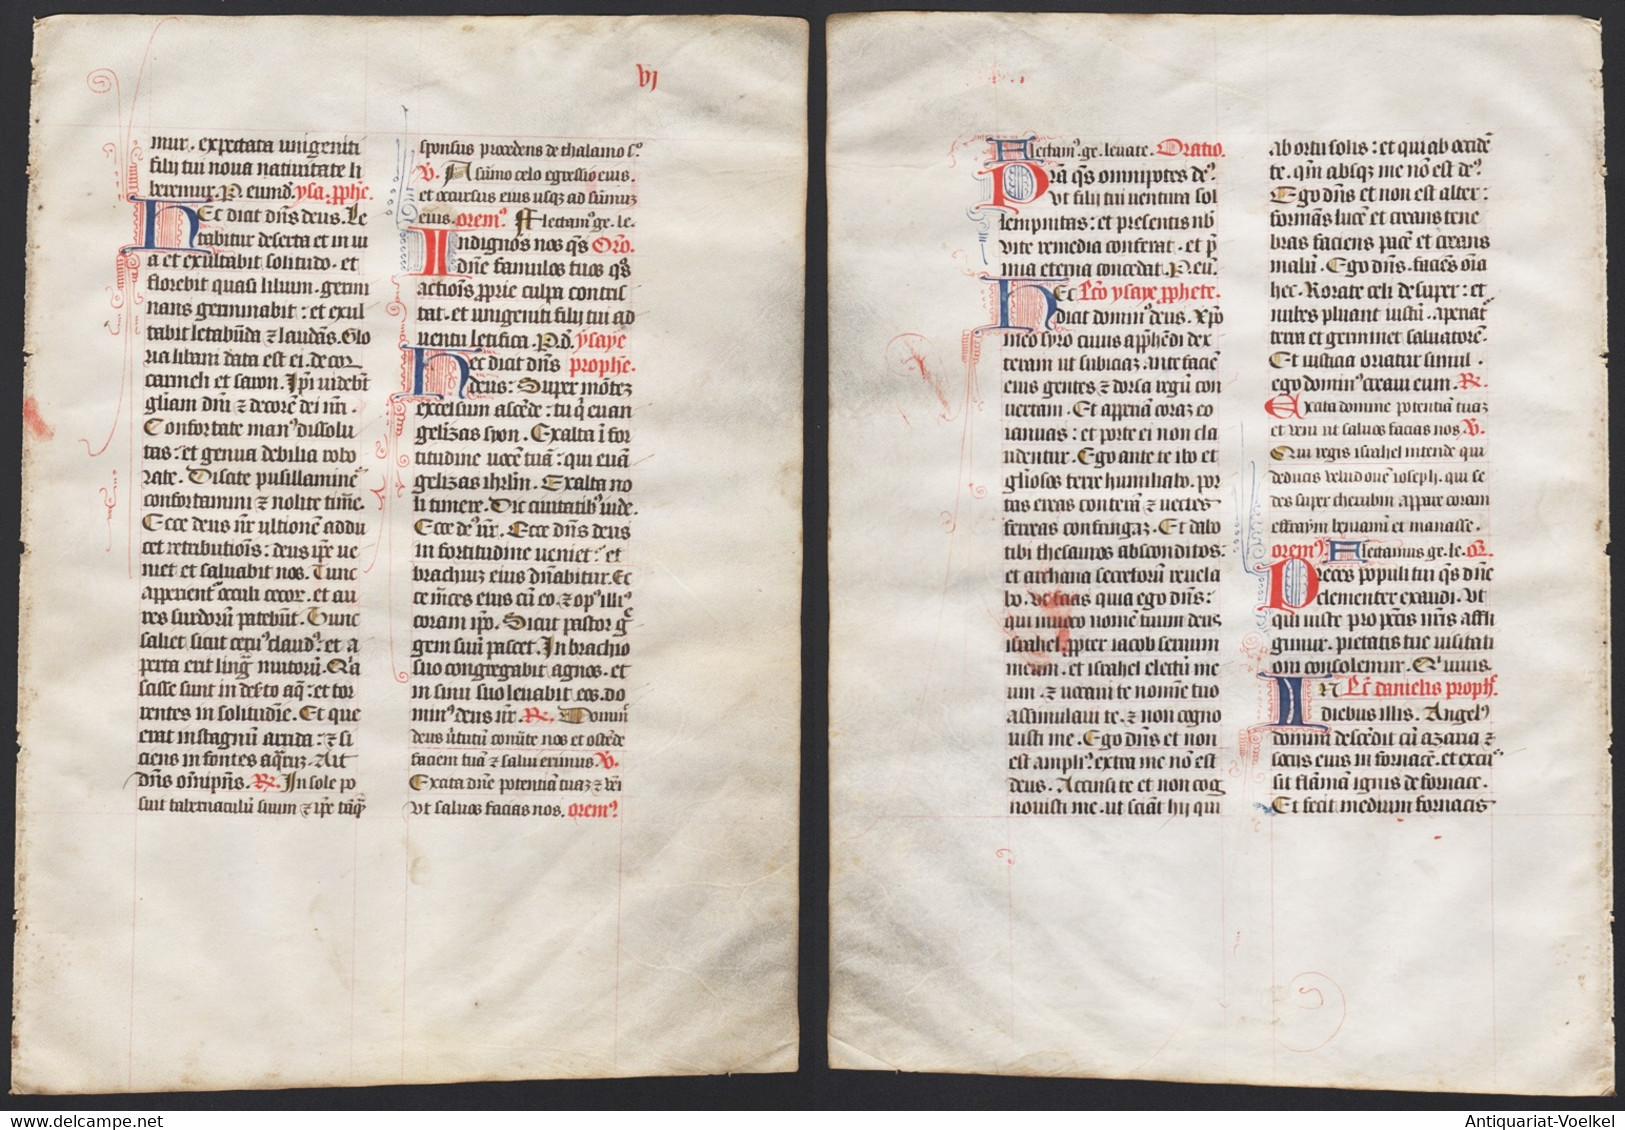 VJ
mur. expectata unigeniti
filij tui noua natiuitate li
beremur. P eumd. ysa. pphe.
Hec dicit dns deus. Le
tabitur deserta et in ui
a et exultabit solitudo. et
florebit quasi lilium. germi
nans germinabit: et exul
tabit letabunda et laudans. Glo
ria libani data est ei. decor
carmeli et saron. Ipi uidebt
gliam dni et decore dei nri.
Confortate man9 dissolu
tas: et genua debilia robo
rate. Dicite pusillamine9
confortamini et nolite time.
Ecce deus nr ultionem addu
cet retributionis: deus ipe ue
niet et saluabit nos. Tunc
apperient oculi cecor. et au
res surdorum patebunt. Tunc
saliet sicut ceru9 claud9. et a
perta erit ling mutorum. Qa
scisse sunt in deserto aq: et tor
rentes in solitudie. Et que
erat in stagnum arida: et si
ciens in fontes aqruz. Ait
dns omnipns. R. In sole po
suit tabernaculum suum et ipe taq
sponsus procedens de thalamo so
V. A summo celo egressio eius.
et occursus eius usqz ad summuz
eius. orem9. Flectam9 ge. le.
Indignos nos qs Oro.
dne famulos tuos qs
actionis pprie culpa contris
tat. et unigeniti filij tui ad
uentu letifica. P.d. ysaye
Hec dicit dns prophe.
deus: Super montez
excelsum ascede: tu q euan
gelizas syon. Exalta i for
titudine uoce tua: qui euan
gelizas ihrlm. Exalta no
li timere. Dic ciuitatib9 iude.
Ecce de9 nr. Ecce dns deus
in fortitudine ueniet: et
brachiuz eius dnabitur. Ec
ce mces eius cu eo. et op9 illi9
coram ipo. Sicut pastor g
gem suum pascet. In brachio
suo congregabit agnos. et
in sinu suo leuabit eos. do
min9 deus nr. R. Domin
deus uirtutum conuerte nos et ostede
faciem tua et salui erimus V.
Excita dne potentia tuaz et ueni
ut saluos facias nos. orem9
Flectam9. ge. leuate. Oratio.
Pra qs omnipotes de9
ut filij tui uentura sol
lempnitas: et presentis nb
uite remedia conferat. et p
mia eterna concedat. P. eu.
Hec Lco ysaye pphete.
dicit domin9 deus. xpo
meo syro cuius apphedi dex
teram ut subiciaz ante faciem
eius gentes et dorsa regum con
uertam. Et apperiam coraz eo
ianuas: et porte ei non cla
udentur. Ego ante te ibo et
gliosos terre humiliabo. por
tas ereas conteram et uectes
ferreas confringaz. Et dabo
tibi thesauros absconditos:
et archana secretorum reuela
bo. ut scias quia ego dns:
qui uuoco nomen tuum deus
israhel. ppter iacob seruum
meum. et israhel electum me
um. et uocaui te nomine tuo
assimulaui te. et non cogno
uisti me. Ego dns et non
est ampli9. extra me no est
deus. Accinxi te et non cog
nouisti me. ut sciant hij qui
ab ortu solis: et qui ab occide
te. qm absqz me no est de9.
Ego dns et non est alter:
formans lucem et creans tene
bras faciens pacem et creans
malum. Ego dns. faciens oia
hec. Rorate celi desuper: et
nubes pluant iustum. aperiat
terra et germinet saluatore.
Et iusticia oriatur simul.
ego domin9 creaui eum. R.
Excita domine potentiam tuaz
et ueni ut saluos facias nos V.
Qui regis israhel intende qui
deducis uelud oue ioseph. qui se
des super cherubin appare coram
effraym beniamin et manasse.
orem9. Flectamus ge. le. Or.
Preces populi tui qs dne
clementer exaudi. ut
qui iuste pro pctis nris affli
gimur. pietatis tue uisitati
one consolemur. Q uiuis.
IN Lco danielis proph
diebus illis. Angel9
domini descedit cu azaria et
socijs eius in fornace. et excu
sit flamma ignis de fornace.
Et fecit medium fornacis
Antiquariat-Voelkel.com